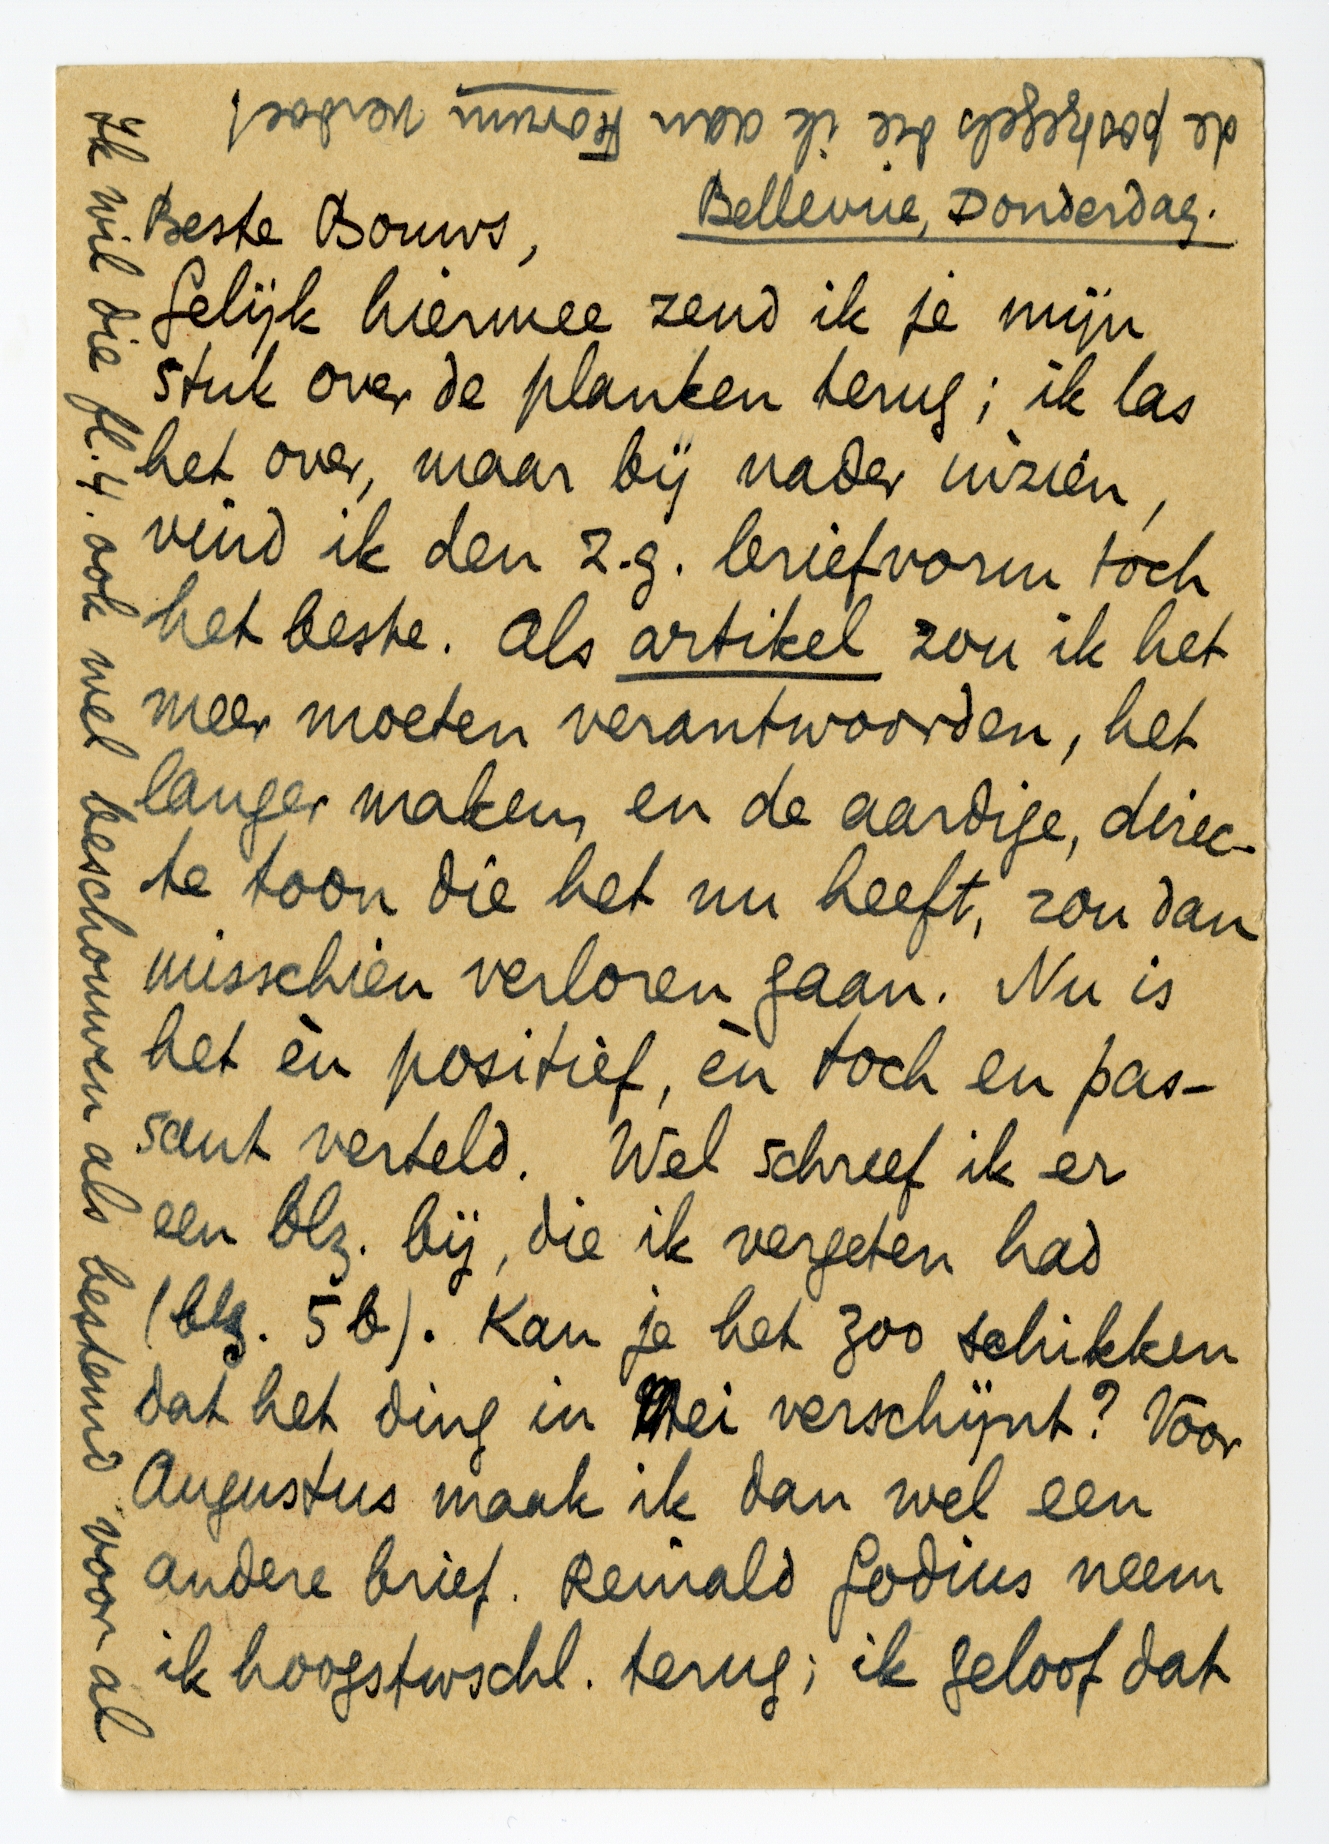 Bellevue, Donderdag.
Beste Bouws,
Gelijk hiermee zend ik je mijn
stuk over de planken terug; ik las
het over, maar bij nader inzien,
vind ik den z.g. briefvorm toch
het beste. Als artikel zou ik het
meer moeten verantwoorden, het
langer maken, en de aardige, direc-
te toon die het nu heeft, zou dan
misschien verloren gaan. Nu is
het èn positief, èn toch en pas-
sant verteld. Wel schreef ik er
een blz. bij, die ik vergeten had
(blz. 5b). Kan je het zoo schikken
dat het ding in Mei verschijnt? Voor
Augustus maak ik dan wel een
andere brief. Reinald Godius neem
ik hoogstwschl. terug; ik geloof dat
Ik wil die fl. 4. ook wel beschouwen als bestemd voor al
de postzegels die ik aan Forum verdoe!